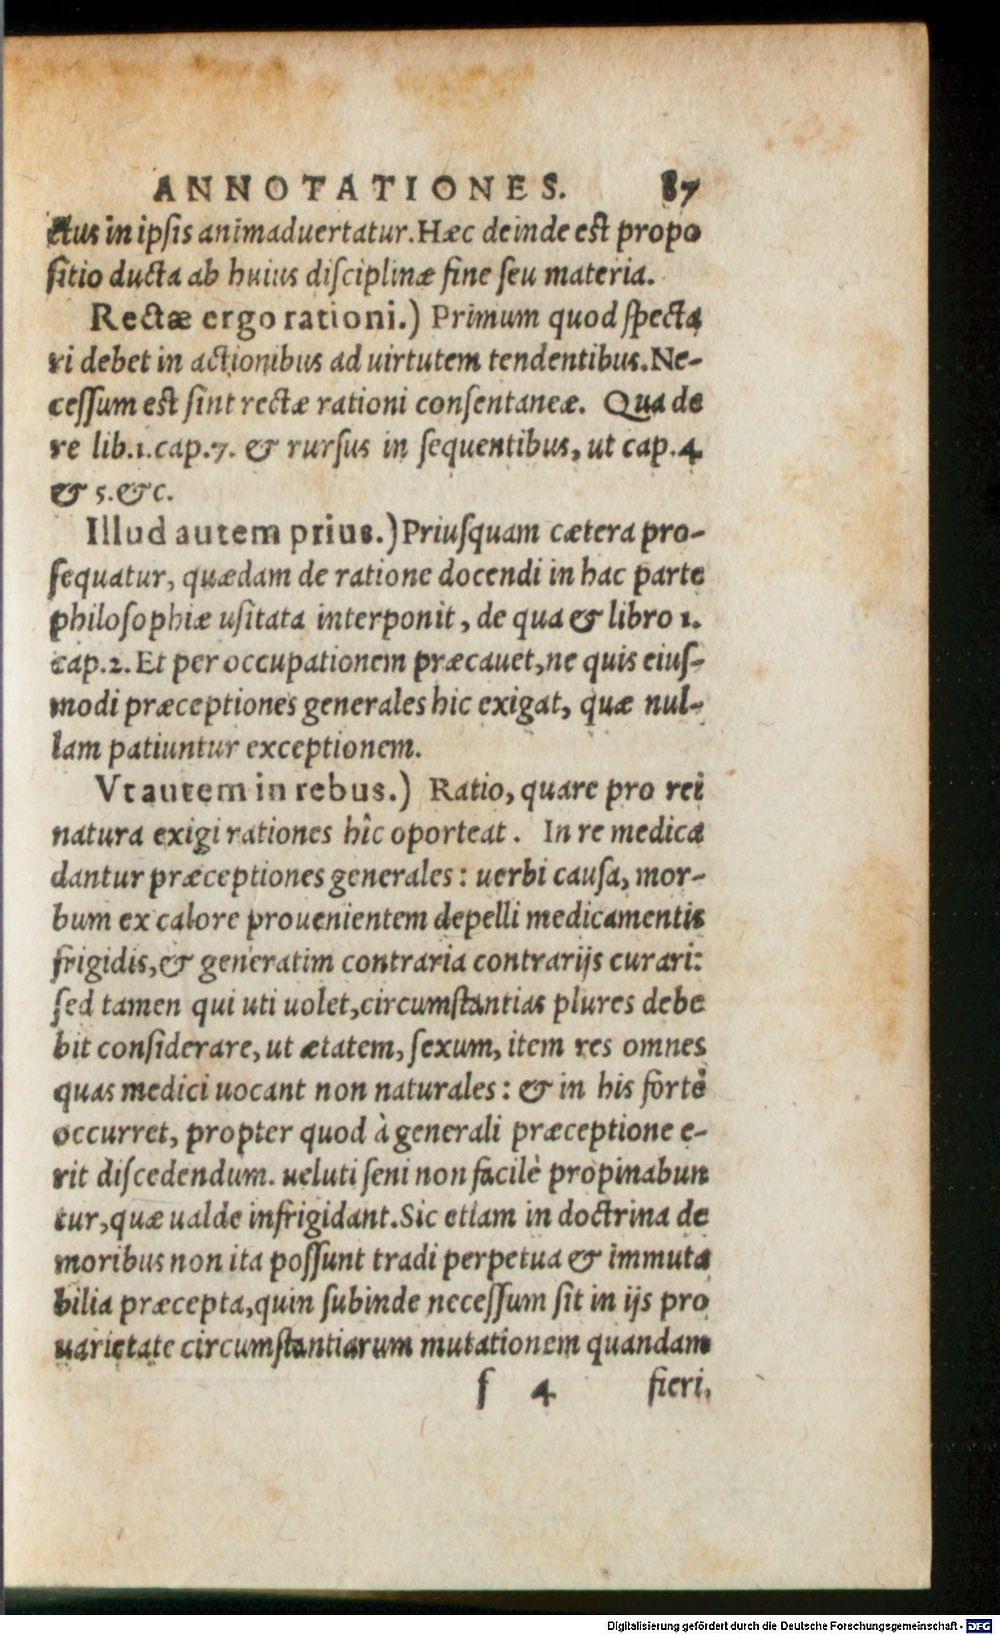 ANNOTATIONES. 87
ctus in ipsis animaduertatur. Hæc deinde est propo
sitio ducta ab huius disciplinæ fine seu materia.
Rectæ ergo rationi.) Primum quod specta
ri debet in actionibus ad uirtutem tendentibus. Ne-
cessum est sint rectæ rationi consentaneæ. Qua de
re lib. 1. cap. 7. & rursus in sequentibus, ut cap. 4
& 5. &c.
Illud autem prius.) Priusquam cætera pro-
sequatur, quædam de ratione docendi in hac parte
philosophiæ usitata interponit, de qua & libro 1.
cap. 2. Et per occupationem præcauet, ne quis eius-
modi præceptiones generales hic exigat, quæ nul-
lam patiuntur exceptionem.
Vt autem in rebus.) Ratio, quare pro rei
natura exigi rationes hîc oporteat. In re medica
dantur præceptiones generales: uerbi causa, mor-
bum ex calore prouenientem depelli medicamentis
frigidis, & generatim contraria contrarijs curari:
sed tamen qui uti uolet, circumstantias plures debe
bit considerare, ut ætatem, sexum, item res omnes
quas medici uocant non naturales: & in his fortè
occurret, propter quod à generali præceptione e-
rit discedendum. ueluti seni non facilè propinabun
tur, quæ ualde infrigidant. Sic etiam in doctrina de
moribus non ita possunt tradi perpetua & immuta
bilia præcepta, quin subinde necessum sit in ijs pro
uarietate circumstantiarum mutationem quandam
f 4 fieri,
Digitalisierung gefördert durch die Deutsche Forschungsgemeinschaft - DFG